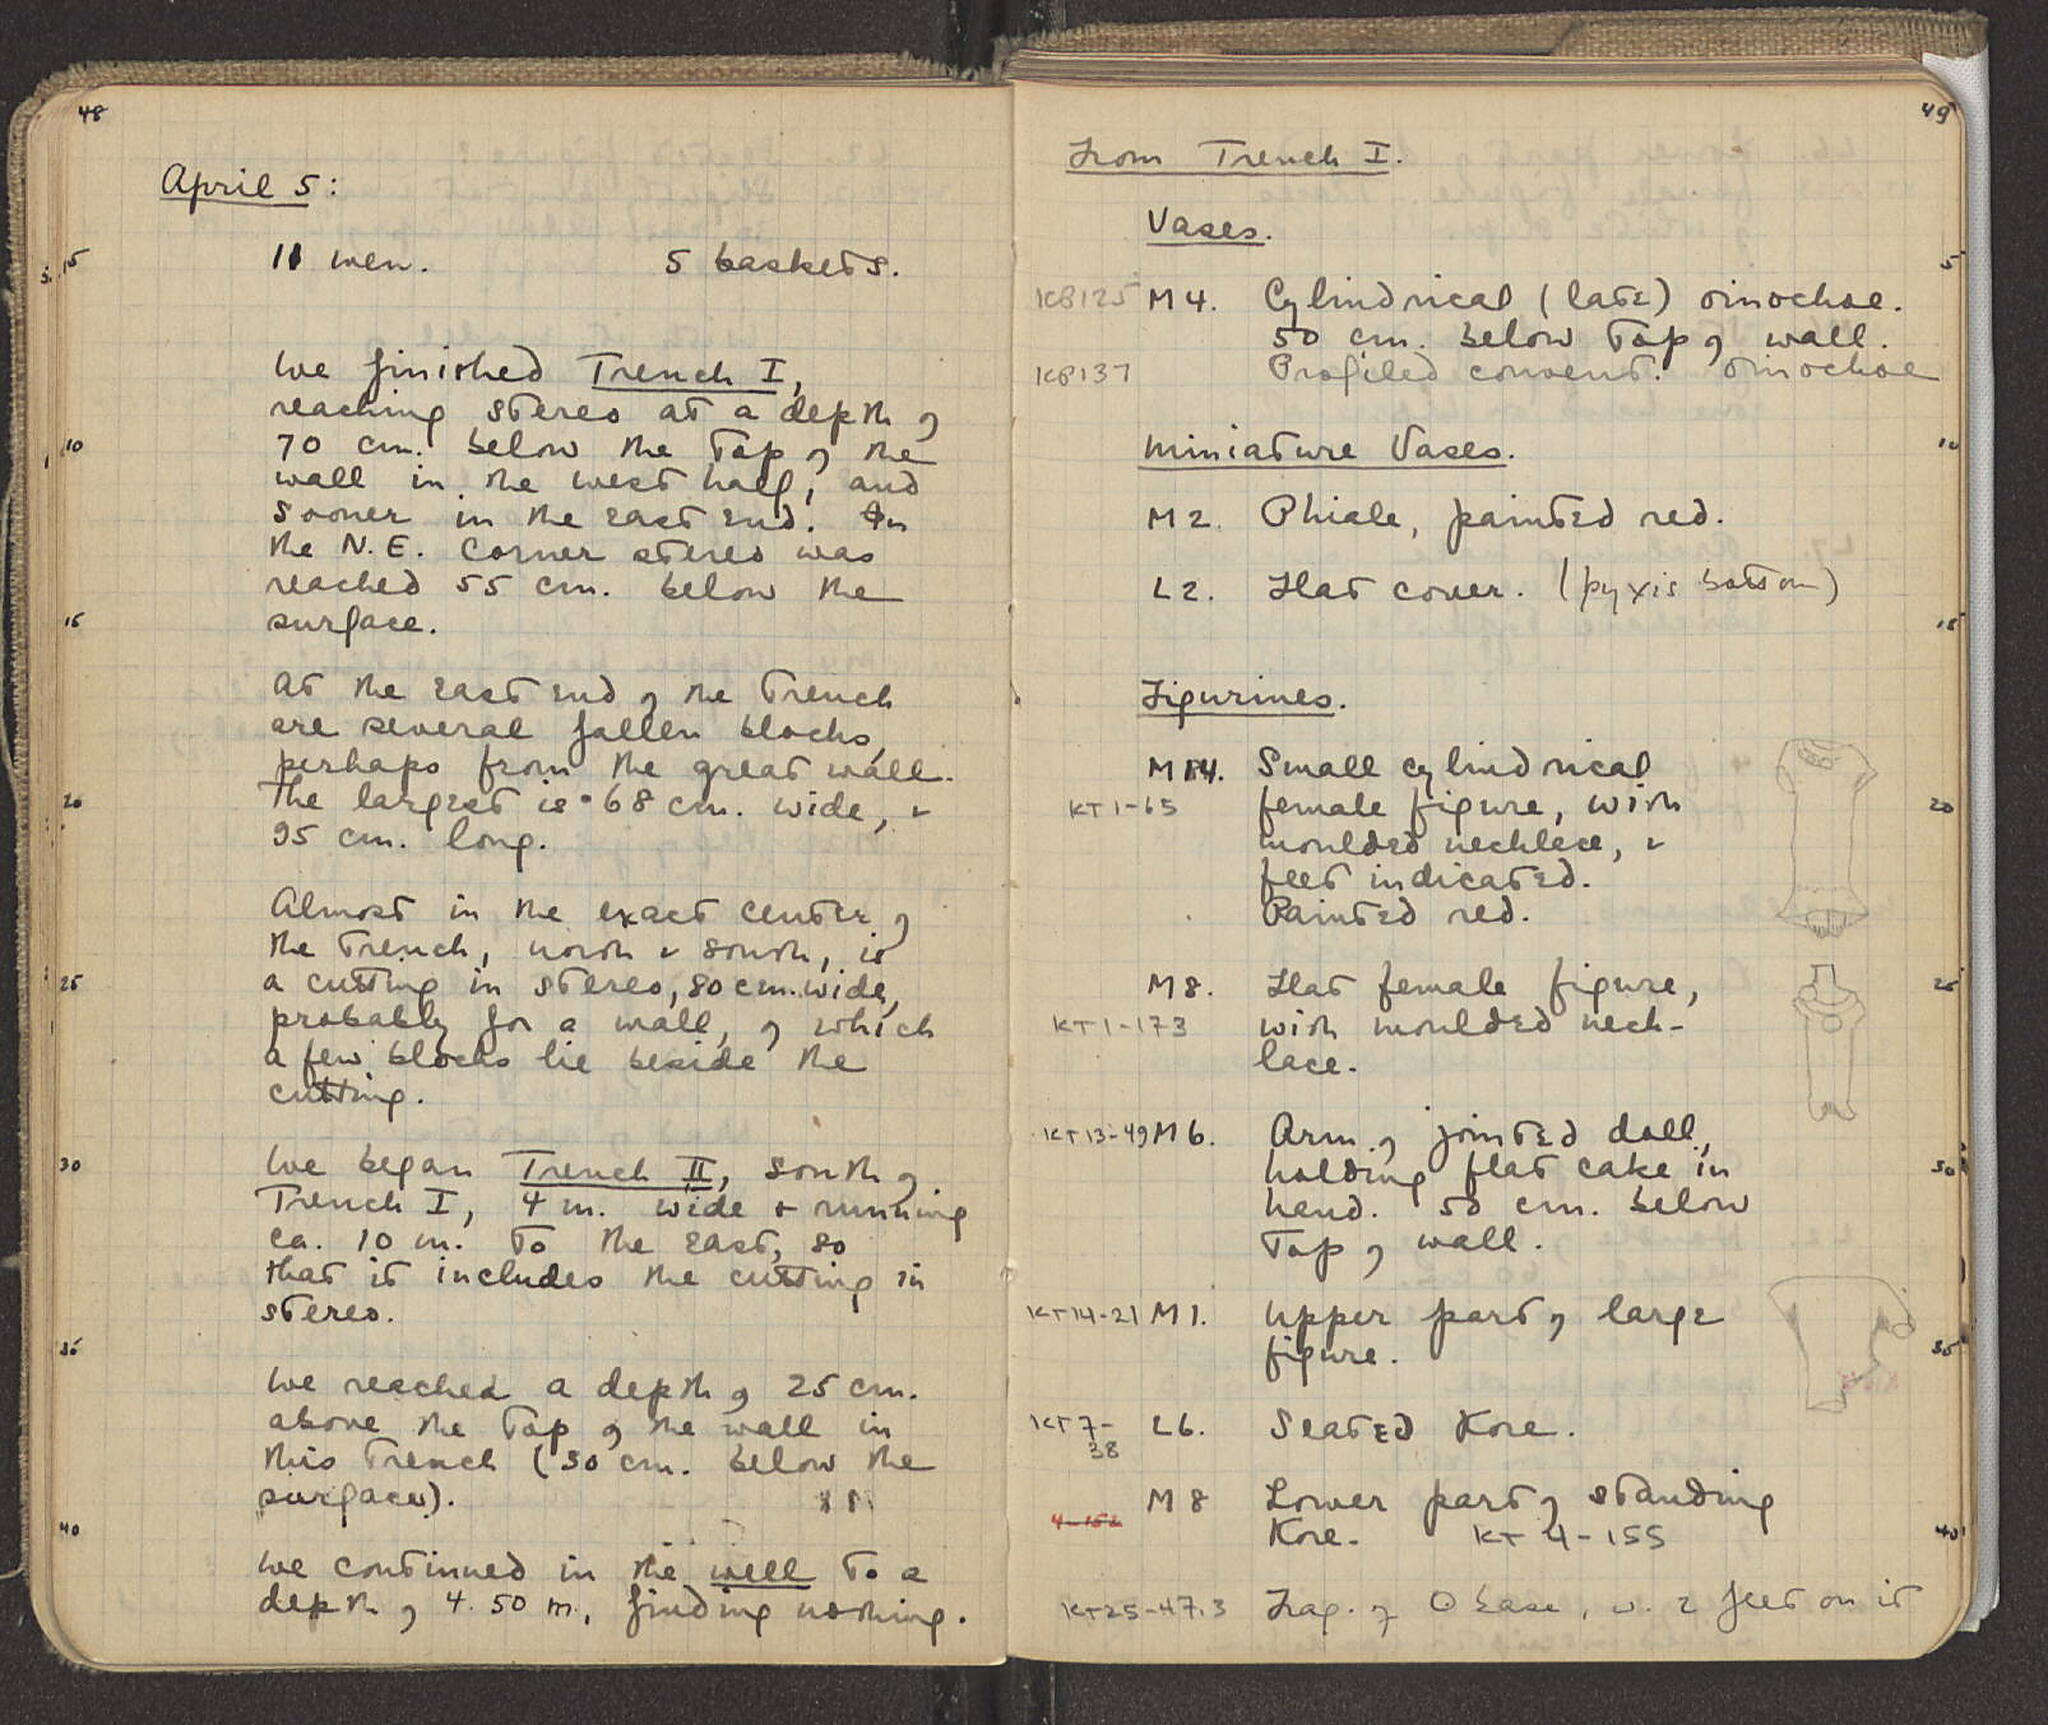 48
April 5:
5
11 men. 5 baskets.
We finished Trench I,
reaching stereo at a depth of
10
70 cm. below the top of the
wall in the west half, and
sooner in the east end. In
the N.E. corner stereo was
reached 55 cm. below the
15
surface.
At the east end of the trench
are several fallen blocks,
perhaps from the great wall.
20
The largest is 68 cm. wide, +
95 cm. long.
Almost in the exact center of
the trench, north + south, is
25
a cutting in stereo, 80 cm. wide,
probably for a wall, of which
a few blocks lie beside the
cutting.
30
We began Trench II, south of
Trench I, 4 m. wide + running
ca. 10 m. to the east, so
that it includes the cutting in
stereo.
35
We reached a depth of 25 cm.
above the top of the wall in
this trench (50 cm. below the
surface).
40
We continued in the well to a
depth of 4.50 m., finding nothing.
49
From Trench I.
Vases.
5
KP125 M4. Cylindrical (late) oinochoe.
50 cm. below top of wall.
KP137 Profiled convent. oinochoe
10
Miniature Vases.
M2. Phiale, painted red.
L2. Flat cover. (pyxis bottom)
15
Figurines.
M14. Small cylindrical
KT1-65 female figure, with
20
moulded necklace, +
feet indicated.
Painted red.
M8. Flat female figure,
25
KT1-173 with moulded neck-
lace.
KT13-49 M6. Arm of jointed doll,
holding flat cake in
30
hand. 50 cm. below
top of wall.
KT14-21 M1. Upper part of large
figure.
35
KT7-38 L6. Seated Kore.
M8 Lower part of standing
4-152 Kore. KT4-155
40
KT25-47.3 Frag. of O base, w. 2 feet on it